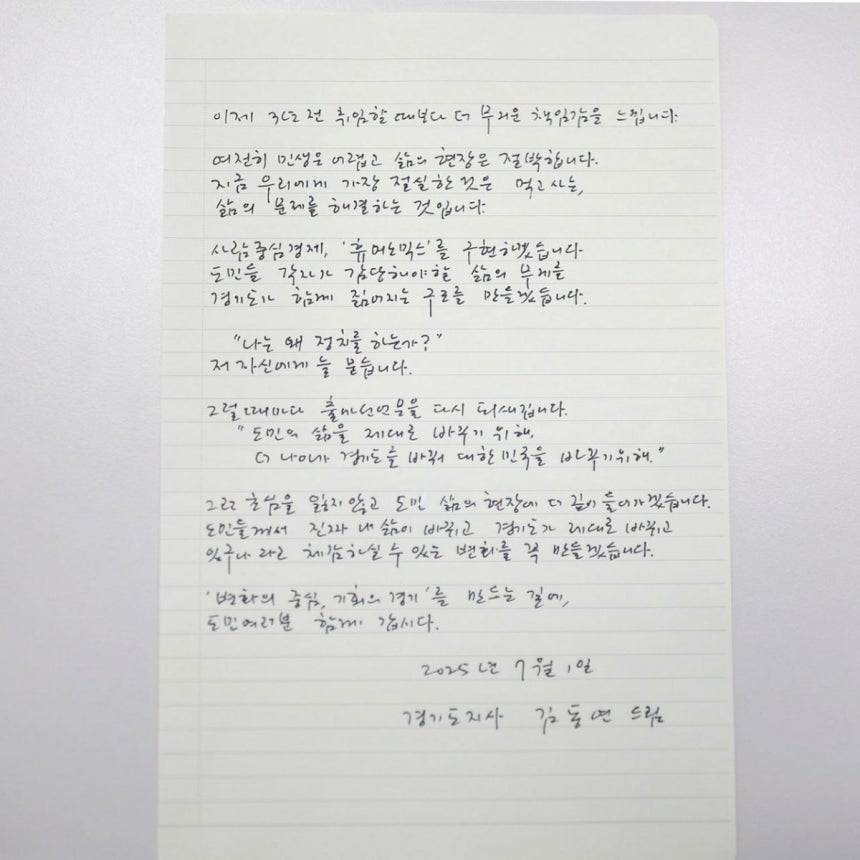 이제 3년 전 취임할 때보다 더 무거운 책임감을 느낍니다.
여전히 민생은 어렵고 삶의 현장은 절박합니다.
지금 우리에게 가장 절실한 것은 먹고 사는,
삶의 문제를 해결하는 것입니다.
사람중심경제, '휴머노믹스'를 구현하겠습니다
도민들 각자가 감당해야할 삶의 무게를
경기도가 함께 짊어지는 구조를 만들겠습니다.
"나는 왜 정치를 하는가?"
저 자신에게 늘 묻습니다.
그럴 때마다 출마선언문을 다시 되새깁니다.
"도민의 삶을 제대로 바꾸기 위해,
더 나아가 경기도를 바꿔 대한민국을 바꾸기위해."
그런 초심을 잃지 않고 도민 삶의 현장에 더 깊이 들어가겠습니다.
도민들께서 진짜 내 삶이 바뀌고 경기도가 제대로 바뀌고
있구나 라고 체감하실 수 있는 변화를 꼭 만들겠습니다.
'변화의 중심, 기회의 경기'를 만드는 길에,
도민여러분 함께 갑시다.
2025년 7월 1일
경기도지사 김동연 드림